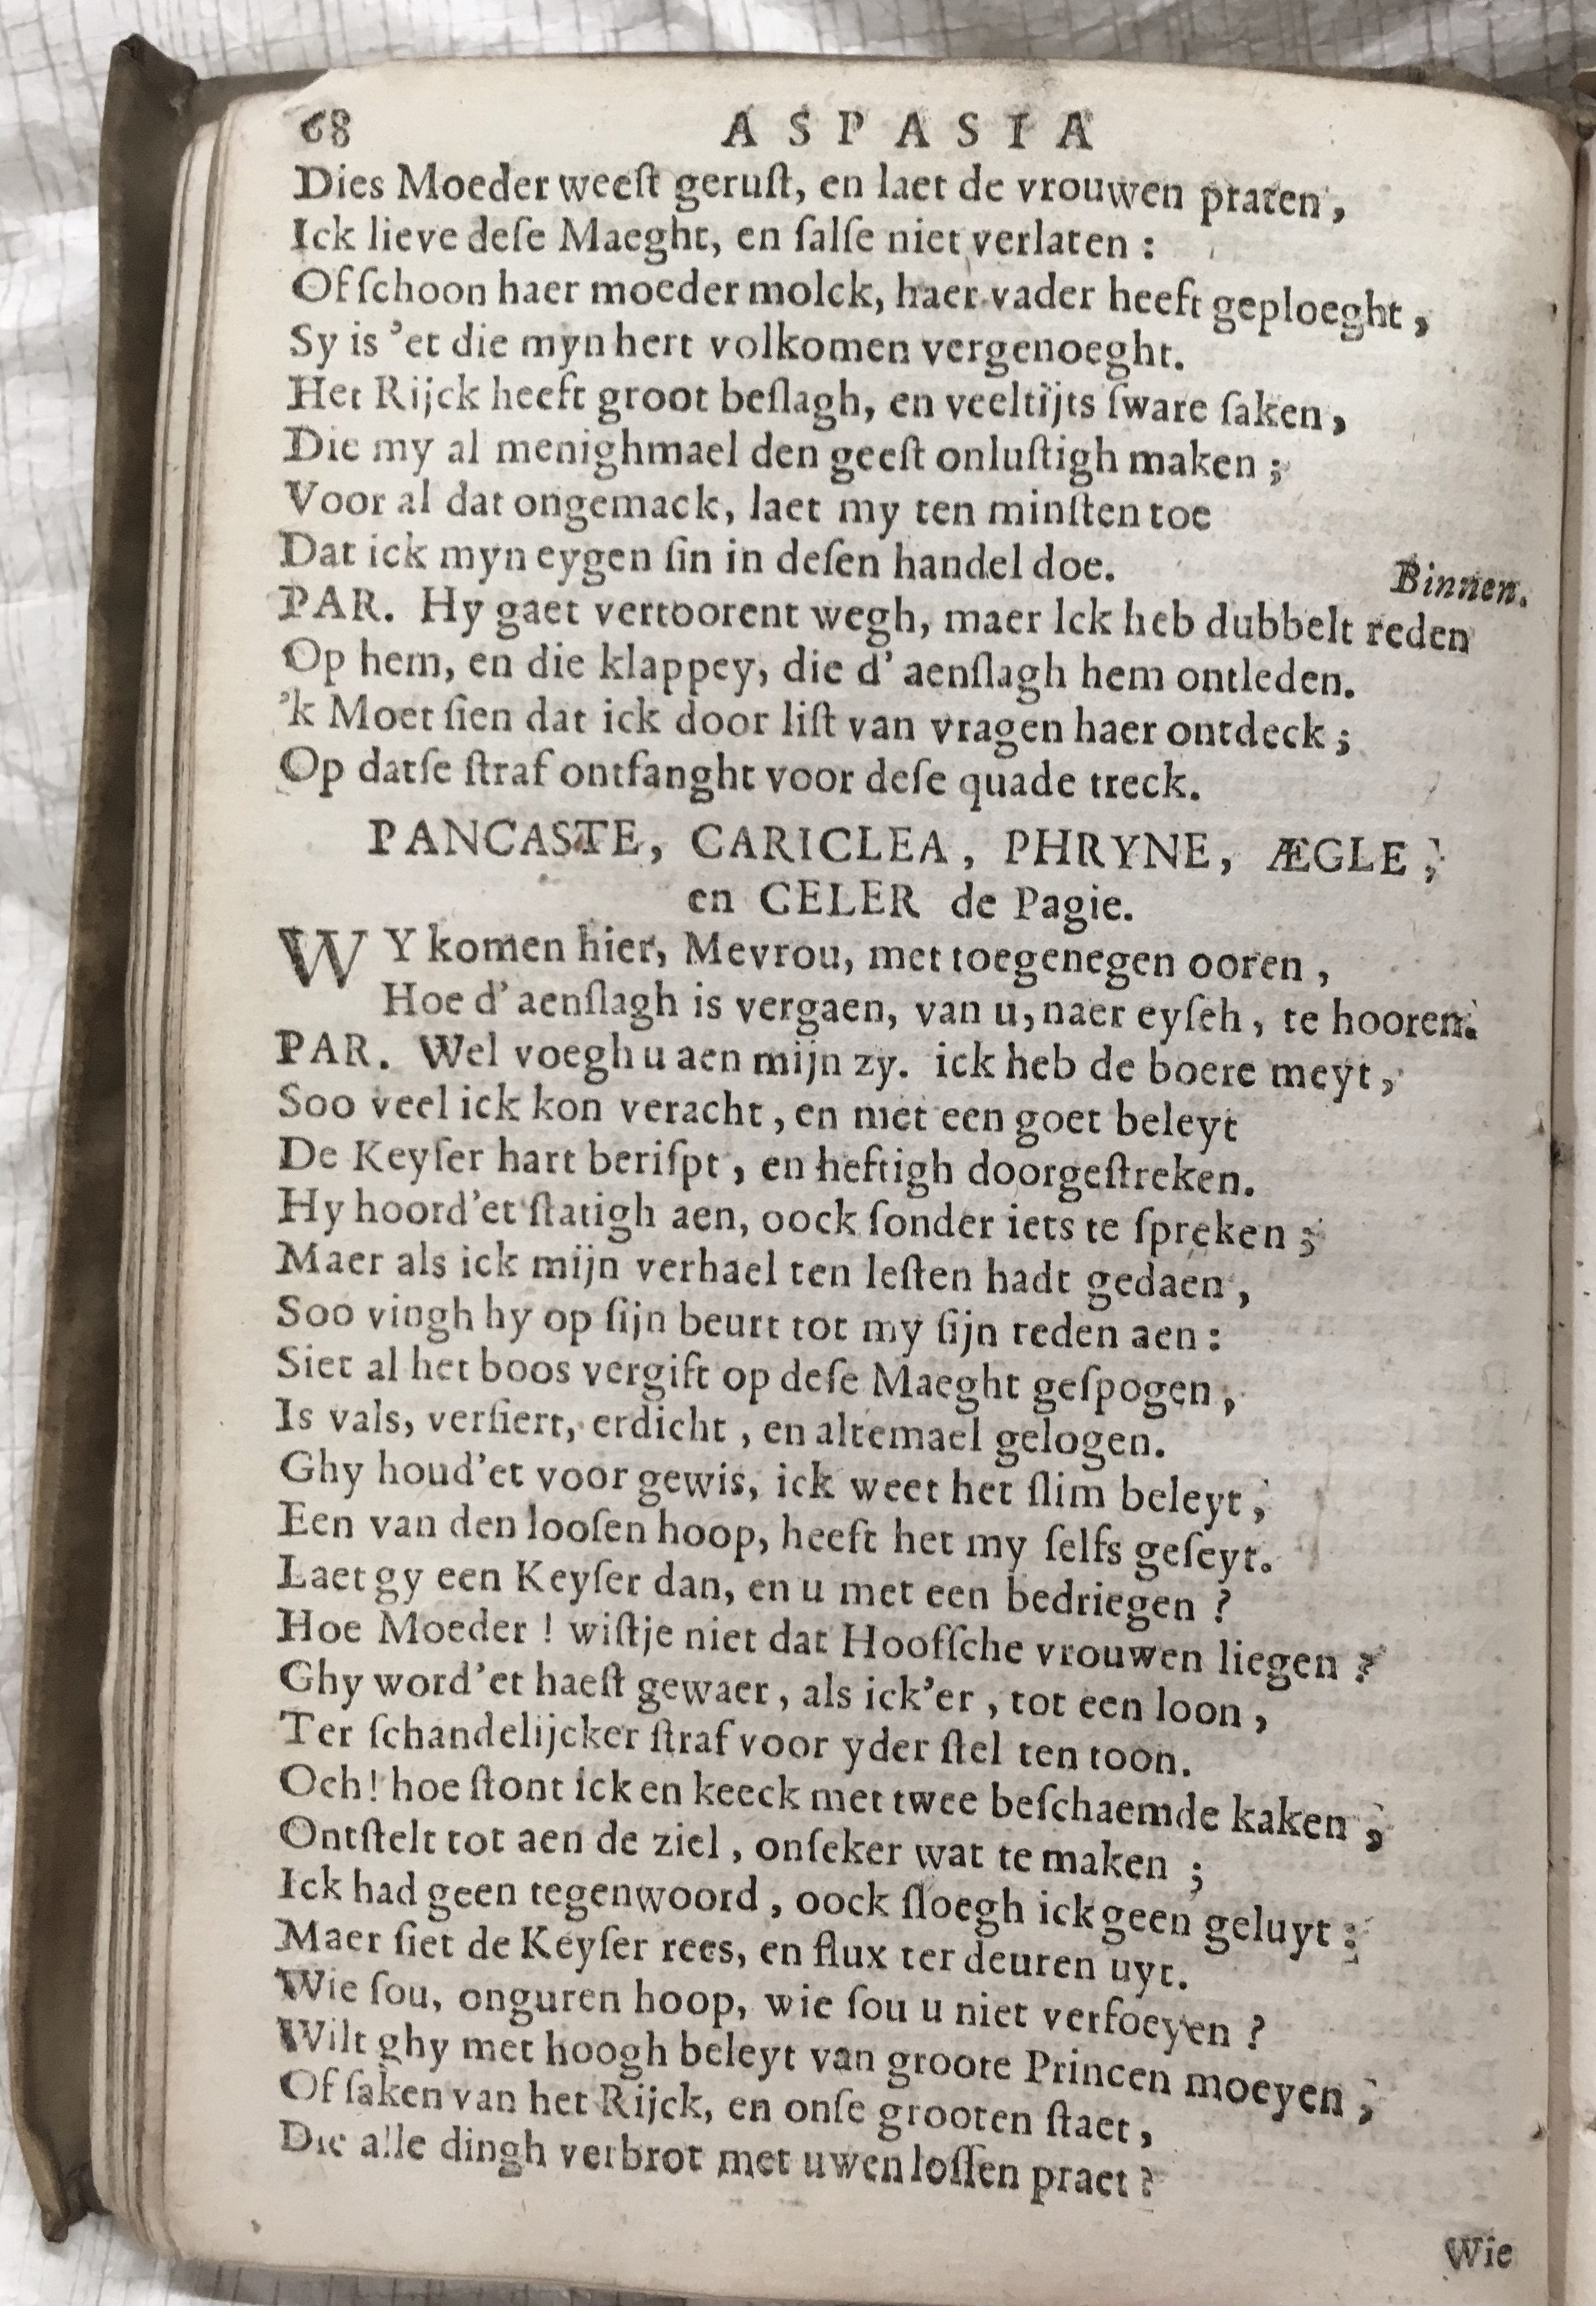 68 ASPASIA
Dies Moeder weeſt geruſt, en laet de vrouwen praten,
Ick lieve deſe Maeght, en ſalſe niet verlaten:
Of ſchoon haer moeder molck, haer vader heeft geploeght,
Sy is 'et die myn hert volkomen vergenoeght.
Het Rijck heeft groot beſlagh, en veeltijts ſware ſaken,
Die my al menighmael den geeſt onluſtigh maken;
Voor al dat ongemack, laet my ten minſten toe
Dat ick myn eygen ſin in deſen handel doe.
Binnen.
PAR. Hy gaet vertoorent wegh, maer Ick heb dubbelt reden
Op hem, en die klappey, die d' aenſlagh hem ontleden.
'k Moet ſien dat ick door liſt van vragen haer ontdeck;
Op datſe ſtraf ontfanght voor deſe quade treck.
PANCASTE, CARICLEA, PHRYNE, ÆGLE;
en CELER de Pagie.
WY komen hier, Mevrou, met toegenegen ooren,
Hoe d' aenſlagh is vergaen, van u, naer eyſeh, te hooren.
PAR. Wel voegh u aen mijn zy. ick heb de boere meyt,
Soo veel ick kon veracht, en met een goet beleyt
De Keyſer hart beriſpt, en heftigh doorgeſtreken.
Hy hoord'et ſtatigh aen, oock ſonder iets te ſpreken;
Maer als ick mijn verhael ten leſten hadt gedaen,
Soo vingh hy op ſijn beurt tot my ſijn reden aen:
Siet al het boos vergift op deſe Maeght geſpogen,
Is vals, verſiert, erdicht, en altemael gelogen.
Ghy houd'et voor gewis, ick weet het ſlim beleyt,
Een van den looſen hoop, heeft het my ſelfs geſeyt.
Laet gy een Keyſer dan, en u met een bedriegen?
Hoe Moeder! wiſtje niet dat Hoofſche vrouwen liegen?
Ghy word'et haeſt gewaer, als ick'er, tot een loon,
Ter ſchandelijcker ſtraf voor yder ſtel ten toon.
Och! hoe ſtont ick en keeck met twee beſchaemde kaken,
Ontſtelt tot aen de ziel, onſeker wat te maken;
Ick had geen tegenwoord, oock ſloegh ick geen geluyt:
Maer ſiet de Keyſer rees, en flux ter deuren uyt.
Wie ſou, onguren hoop, wie ſou u niet verfoeyen?
Wilt ghy met hoogh beleyt van groote Princen moeyen,
Of ſaken van het Rijck, en onſe grooten ſtaet,
Die alle dingh verbrot met uwen loſſen praet?
Wie